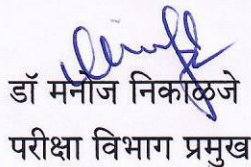 डॉ मनोज निकाळजे
परीक्षा विभाग प्रमुख